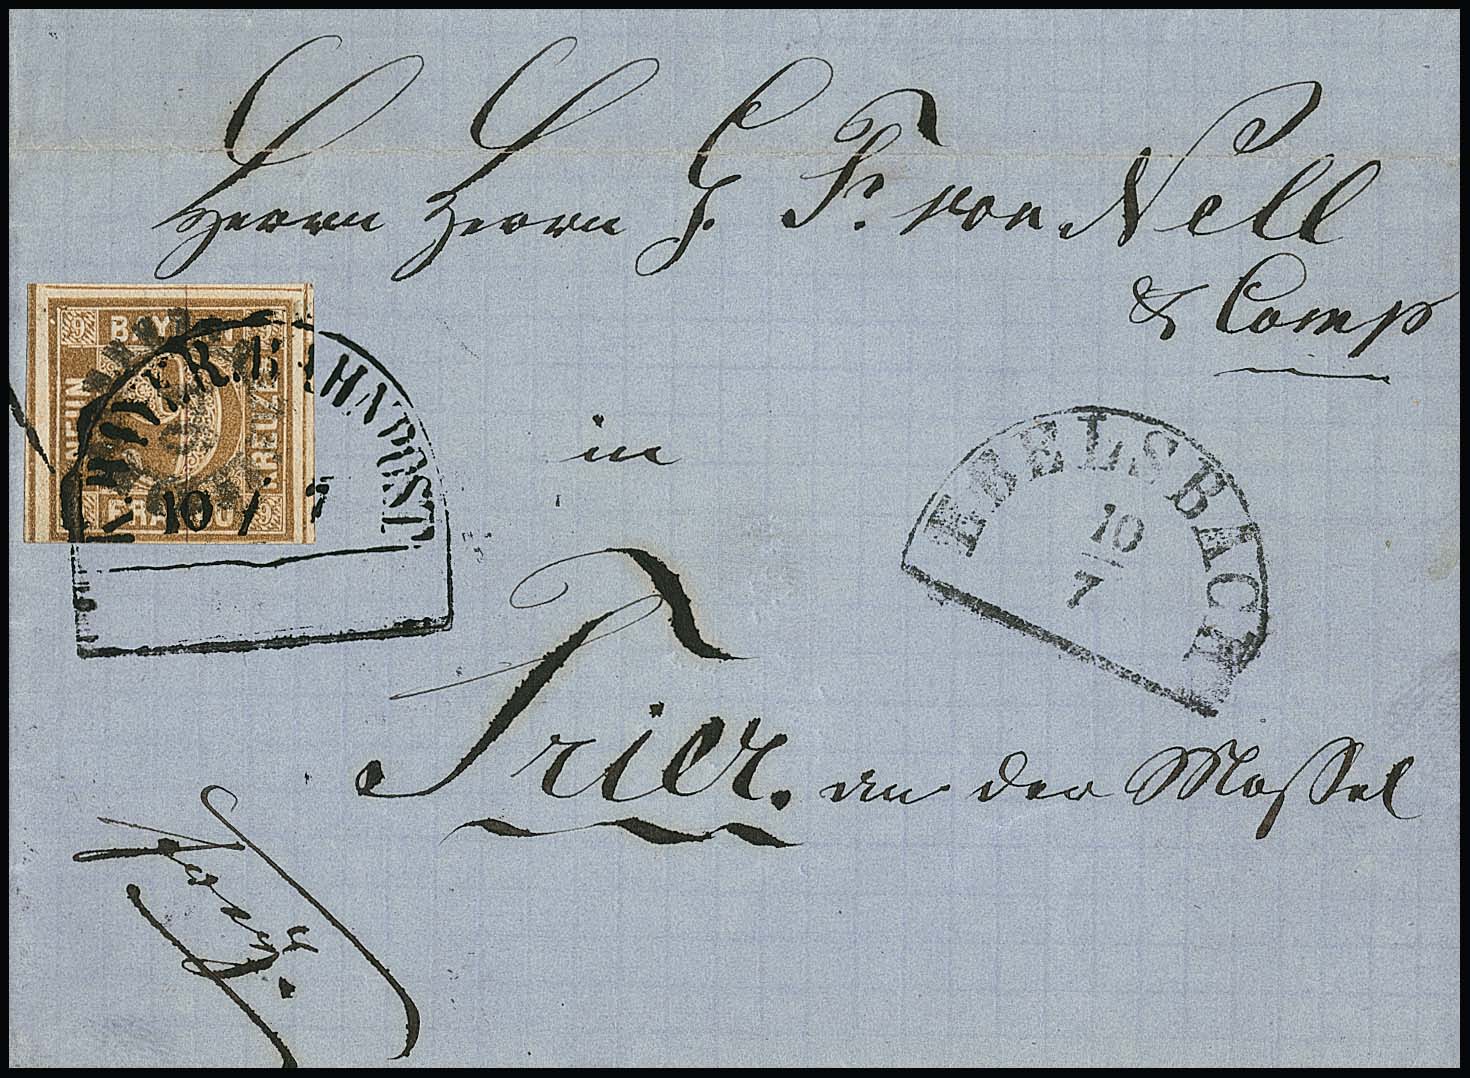 Herrn Herrn G. Fr. von Nell
& Comp
in
Trier. an der Mossel
franco.
9 BAYERN
NEUN
KREUZER
FRANCO
BAHNPOST
10 / 7
EBELSBACH
10
7